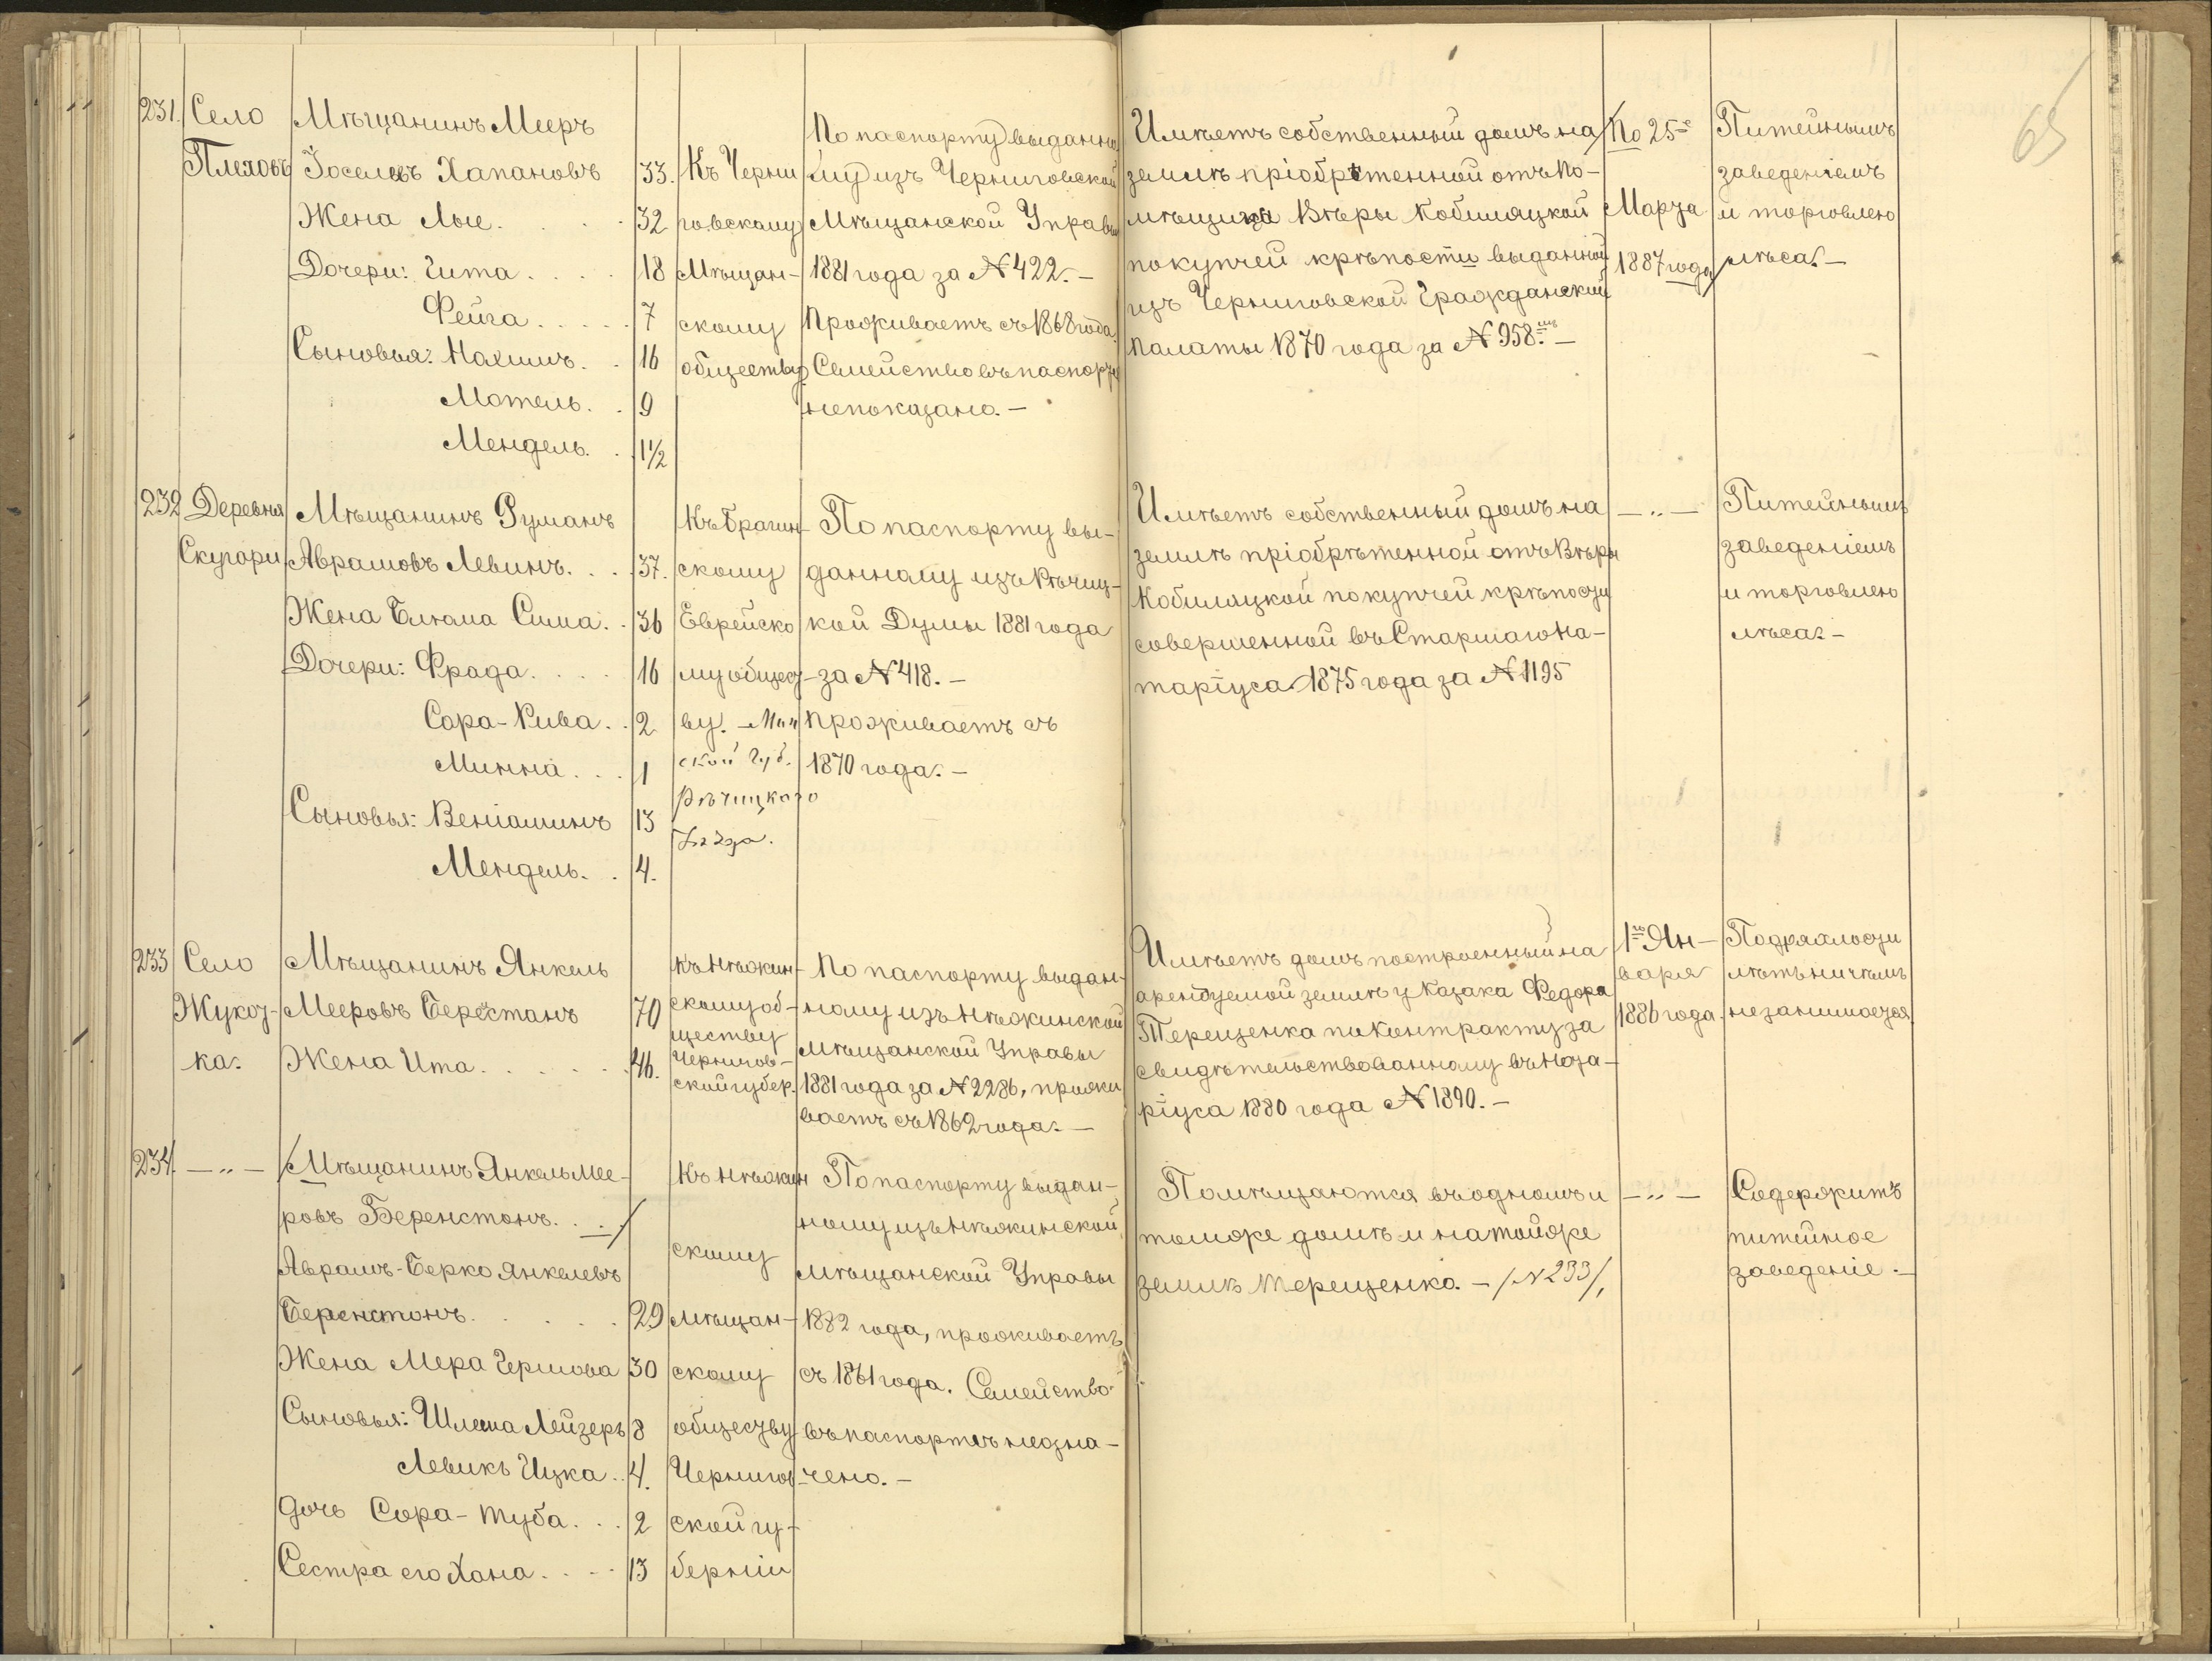 65
231.
Село
Плеховъ
Мѣщанинъ Мееръ
Іоселевъ Хапановъ 33.
Жена Лые. 32
Дочери: Гита 18
Фейга 7
Сыновья: Нахимъ. 16
Мотель. 9
Мендель. 1½
Къ Черни
говскому
Мѣщан-
скому
обществу
По паспорту выданно
му изъ Черниговской
Мѣщанской Управы
1881 года за № 422.-
Проживаетъ съ 1868 года.
Семейство въ паспорту
непоказано.-
Имѣетъ собственный домъ на
землѣ пріобрѣтенной отъ по-
мѣщицы Вѣры Кобиляцкой
покупчей крѣпости выданной
изъ Черниговской Гражданской
палаты 1870 года за № 958.-
По 25-е
Марта
1887 года
Питейнымъ
заведеніемъ
и торговлею
лѣса.-
232
Деревня
Скугари
Мѣщанинъ Руманъ
Аврамовъ Левинъ. 37.
Жена Блюма Сима. 36
Дочери: Фрада. 16
Сора-Рива. 2
Минна. 1
Сыновья: Веніаминъ 13
Мендель. 4.
Къ Брагин-
скому
Еврейско
му общест-
ву. - Мин
ской Губ.
Рѣчицкого
уѣзда.
По паспорту вы-
данному изъ Рѣчиц-
кой Думы 1881 года
за № 418.-
Проживаетъ съ
1870 года.-
Имѣетъ собственный домъ на
землѣ пріобрѣтенной отъ Вѣры
Кобиляцкой покупчей крѣпости
совершенной въ Старшаго На-
таріуса 1875 года за № 1195
- " -
Питейнымъ
заведеніемъ
и торговлею
лѣса.-
233
Село
Жукот-
ка.
Мѣщанинъ Янкель
Мееровъ Берестанъ 70
Жена Ита. 46.
Къ Нѣжин-
скому об-
ществу
Чернигов-
ской губер.
По паспорту выдан-
ному изъ Нѣжинской
Мѣщанской Управы
1881 года за № 2286, прожи
ваетъ съ 1862 года.-
Имѣетъ домъ построенный на
арендуемой землѣ у Казака Федора
Терещенка по Контракту за
свидѣтельствованному въ Нота-
ріуса 1880 года № 1890.-
1-го Ян-
варя
1886 года
Подряхлости
лѣтъ ничѣмъ
незанимается
234.
- " -
/Мѣщанинъ Янкель Мее-
ровъ Беренстонъ. /
Аврамъ-Берко Янкелевъ
Беренстонъ. 29
Жена Мера Гершова 30
Сыновья: Шлема Лейзеръ 8
Левикъ Ицка. 4.
Дочь Сора-Туба. 2
Сестра его Хана. 13
Къ Нѣжин
скому
мѣщан-
скому
обществу
Чернигов
ской гу-
берніи
По паспорту выдан-
ному изъ Нѣжинской
мѣщанской Управы
1882 года, проживаетъ
съ 1861 года. Семейство
въ паспортѣ незна-
чено.-
Помѣщаются въ одномъ и
томже домѣ и на тойже
землѣ Терещенка.- /№ 233/,
- " -
Содержитъ
питейное
заведеніе.-